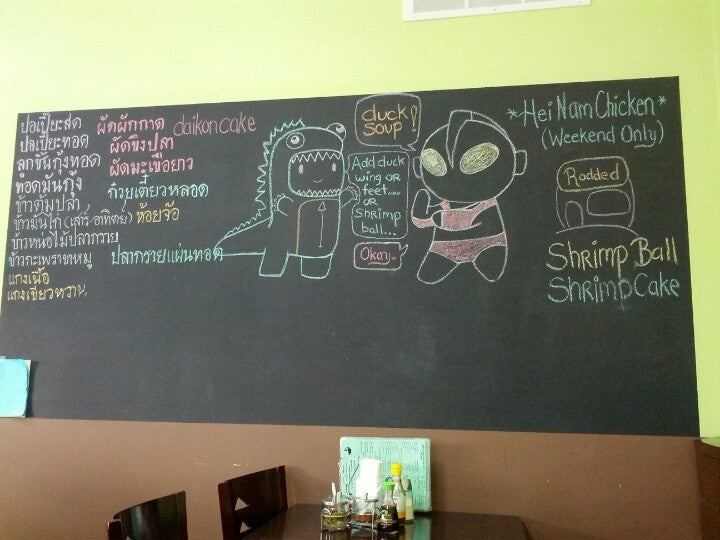 ปอเปี๊ยะสด
ปอเปี๊ยะทอด
ลูกชิ้นกุ้งทอด
ทอดมันกุ้ง
ข้าวต้มปลา
ข้าวมันไก่ (เสาร์-อาทิตย์)
ข้าวหน่อไม้ปลากราย
ข้าวกะเพราขาหมู
แกงเนื้อ
แกงเขียวหวาน
ผัดผักกาด daikon cake
ผัดขิงปลา
ผัดมะเขือยาว
ก๋วยเตี๋ยวหลอด
ห้อยจ๊อ
ปลากรายแผ่นทอด
duck
soup!
Add duck
wing or
feet....
or
Shrimp
ball...
Okay.
*Hei Nam Chicken*
(Weekend Only)
Radded
Shrimp Ball
Shrimp Cake